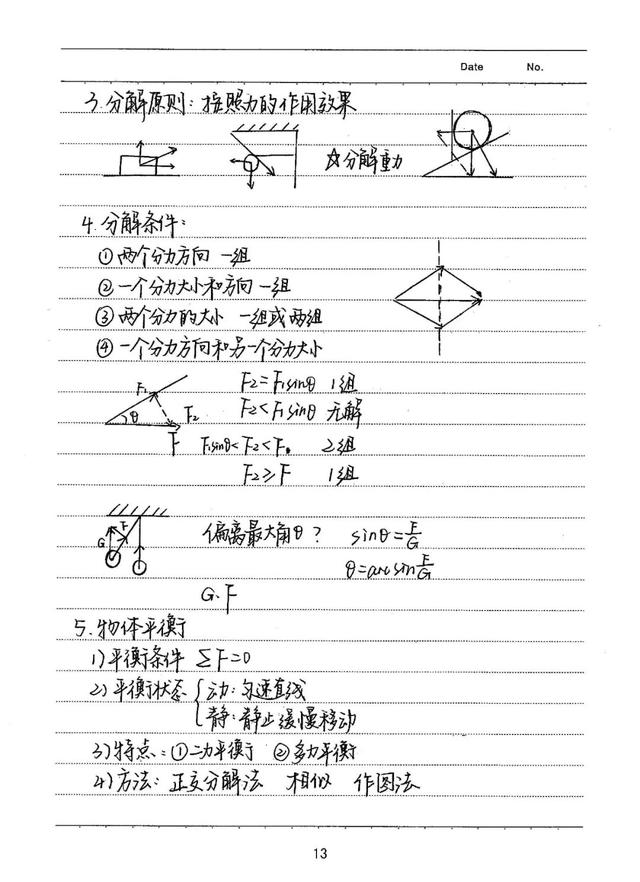 Date No.
3.分解原则：按照力的作用效果
☆分解重力
4.分解条件：
①两个分力方向 一组
②一个分力大小和方向 一组
③两个分力的大小 一组或两组
④一个分力方向和另一个分力大小
F₁ θ F₂ F
F₂=F₁sinθ 1组
F₂<F₁sinθ 无解
F₁sinθ<F₂<F 2组
F₂≥F 1组
G F
偏离最大角θ？ sinθ=F/G
θ=arcsin F/G
G.F
5.物体平衡
1)平衡条件 ΣF=0
2)平衡状态 { 动：匀速直线
静：静止缓慢移动
3)特点：①二力平衡 ②多力平衡
4)方法：正交分解法 相似 作图法
13